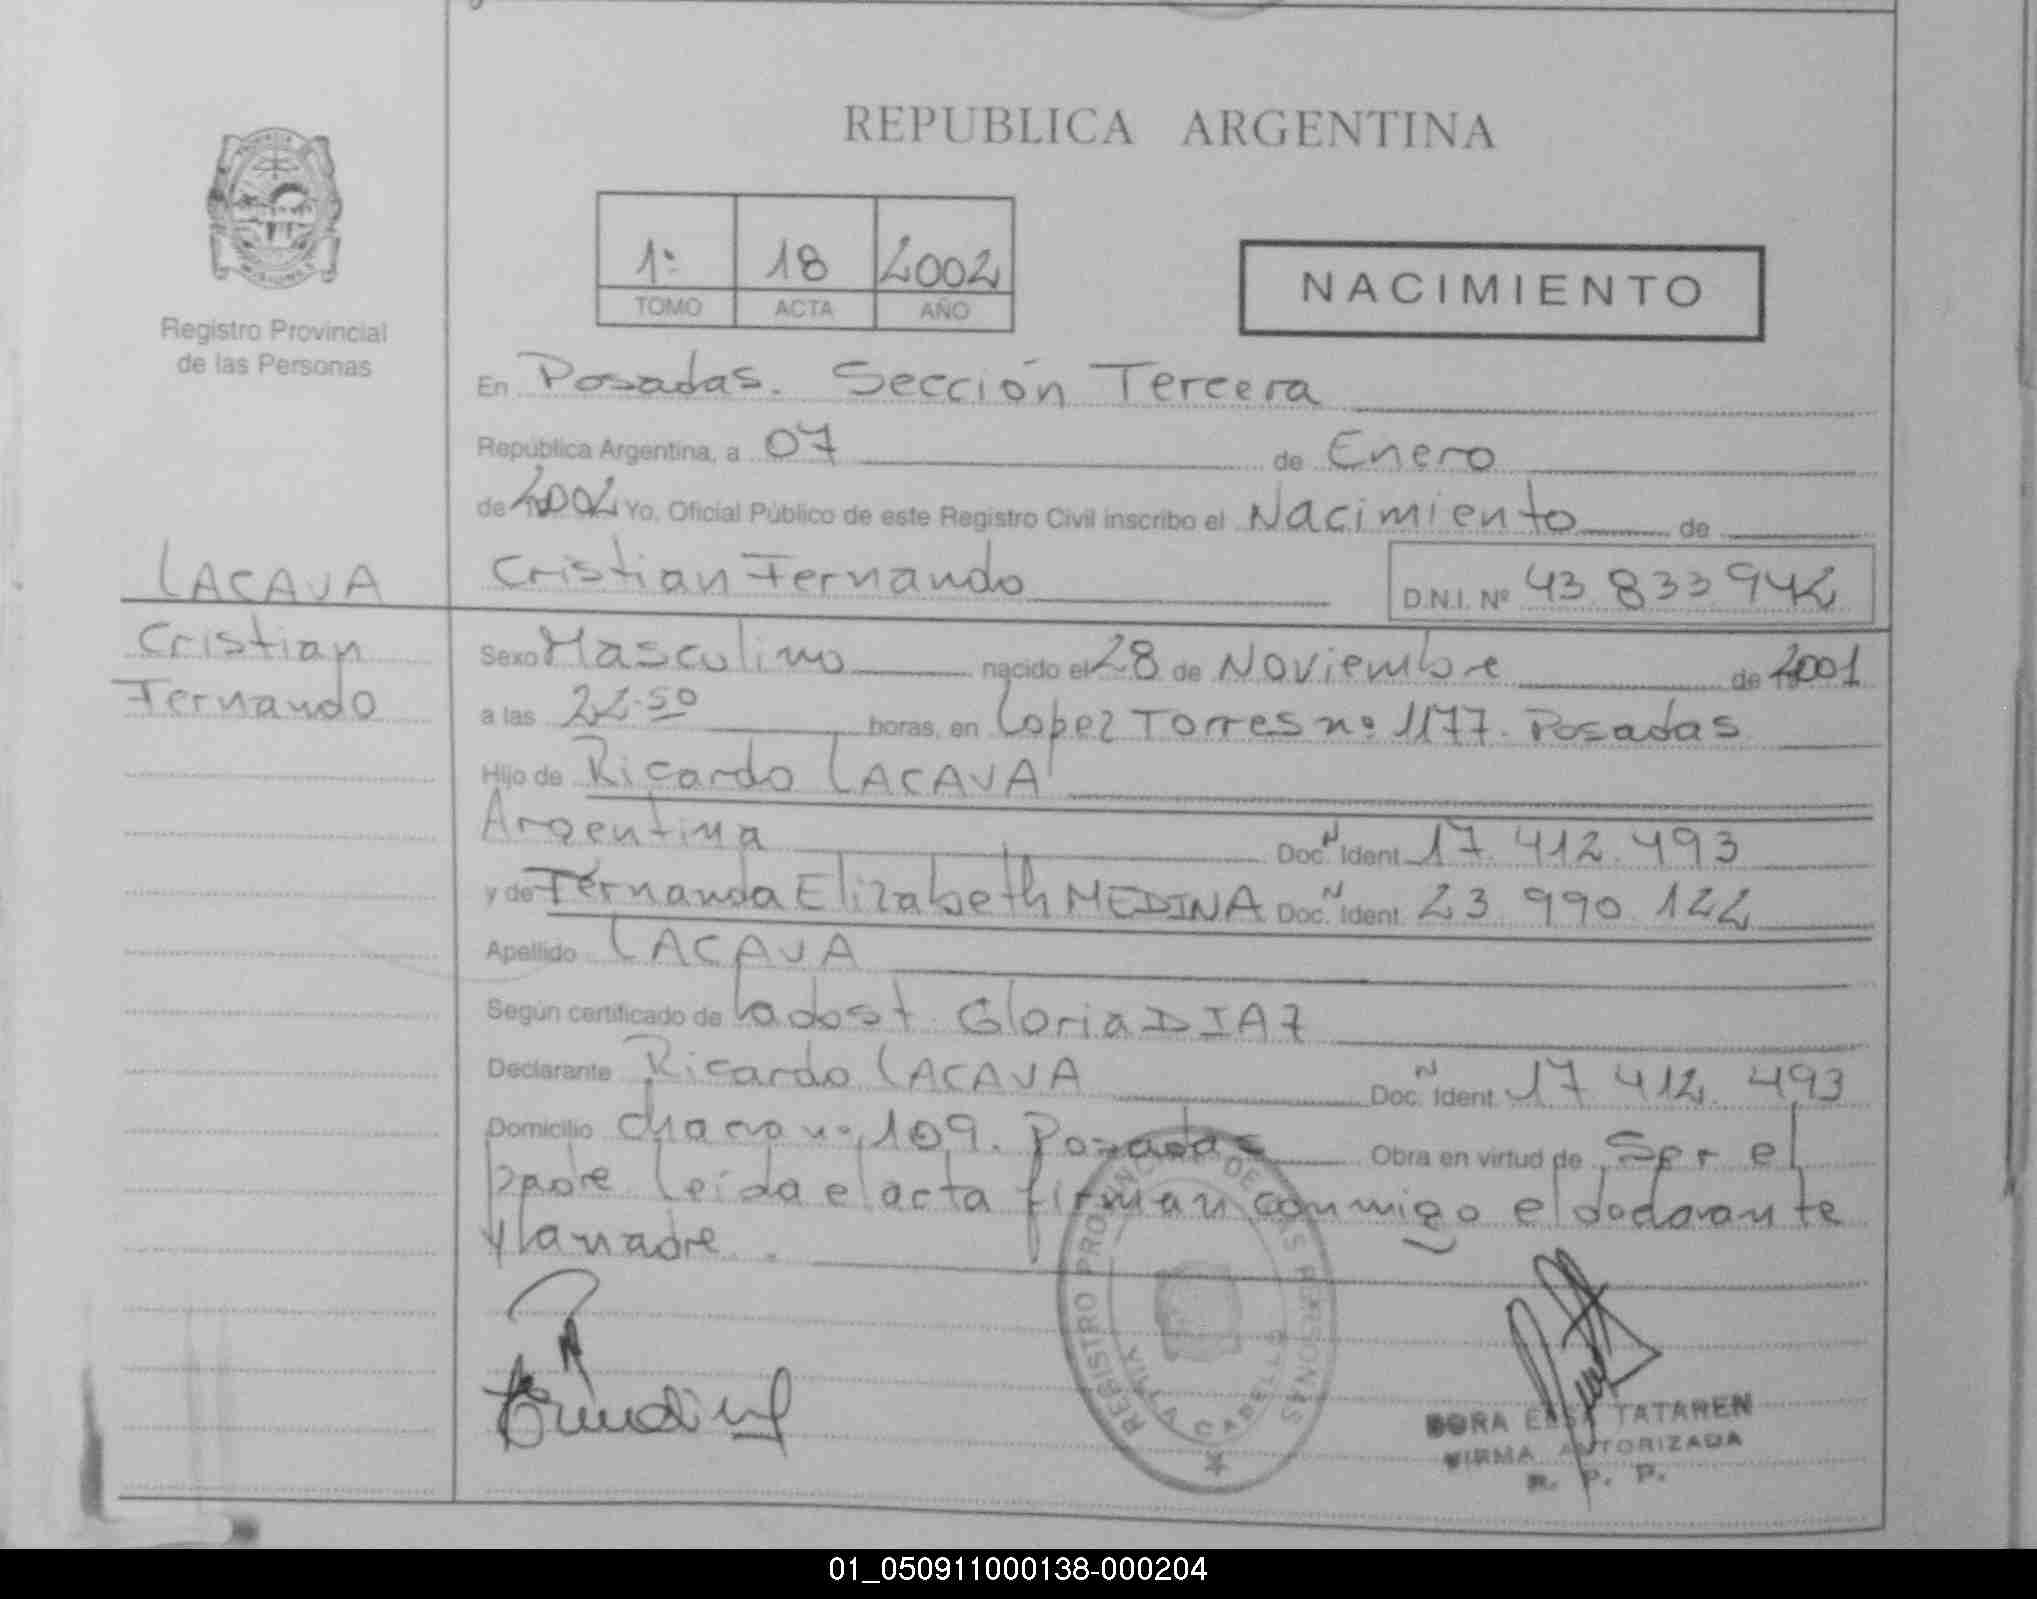 REPUBLICA ARGENTINA
1º 18 2002
TOMO ACTA AÑO
NACIMIENTO
Registro Provincial
de las Personas
En Posadas. Sección Tercera
República Argentina, a 07 de Enero
de 2002 Yo, Oficial Público de este Registro Civil inscribo el Nacimiento de
Cristian Fernando D.N.I. Nº 43 833 942
LACAVA
Cristian
Fernando
Sexo Masculino nacido el 28 de Noviembre de 2001
a las 22.50 horas, en Lopez Torres nº 1177. Posadas
Hijo de Ricardo LACAVA
Argentina Doc. N Ident. 17. 412. 493
y de Fernanda Elizabeth MEDINA Doc. N Ident. 23 990 122
Apellido LACAVA
Según certificado de Gloria DIAZ
Declarante Ricardo LACAVA Doc. N Ident. 17 412. 493
Domicilio nº 109. Posadas Obra en virtud de Ser el
padre Leida el acta firman conmigo el
y la madre.
REGISTRO PROVINCIAL DE LAS PERSONAS
VILLA CABELLO
DORA ELSA TATAREN
FIRMA AUTORIZADA
R. P. P.
01_050911000138-000204